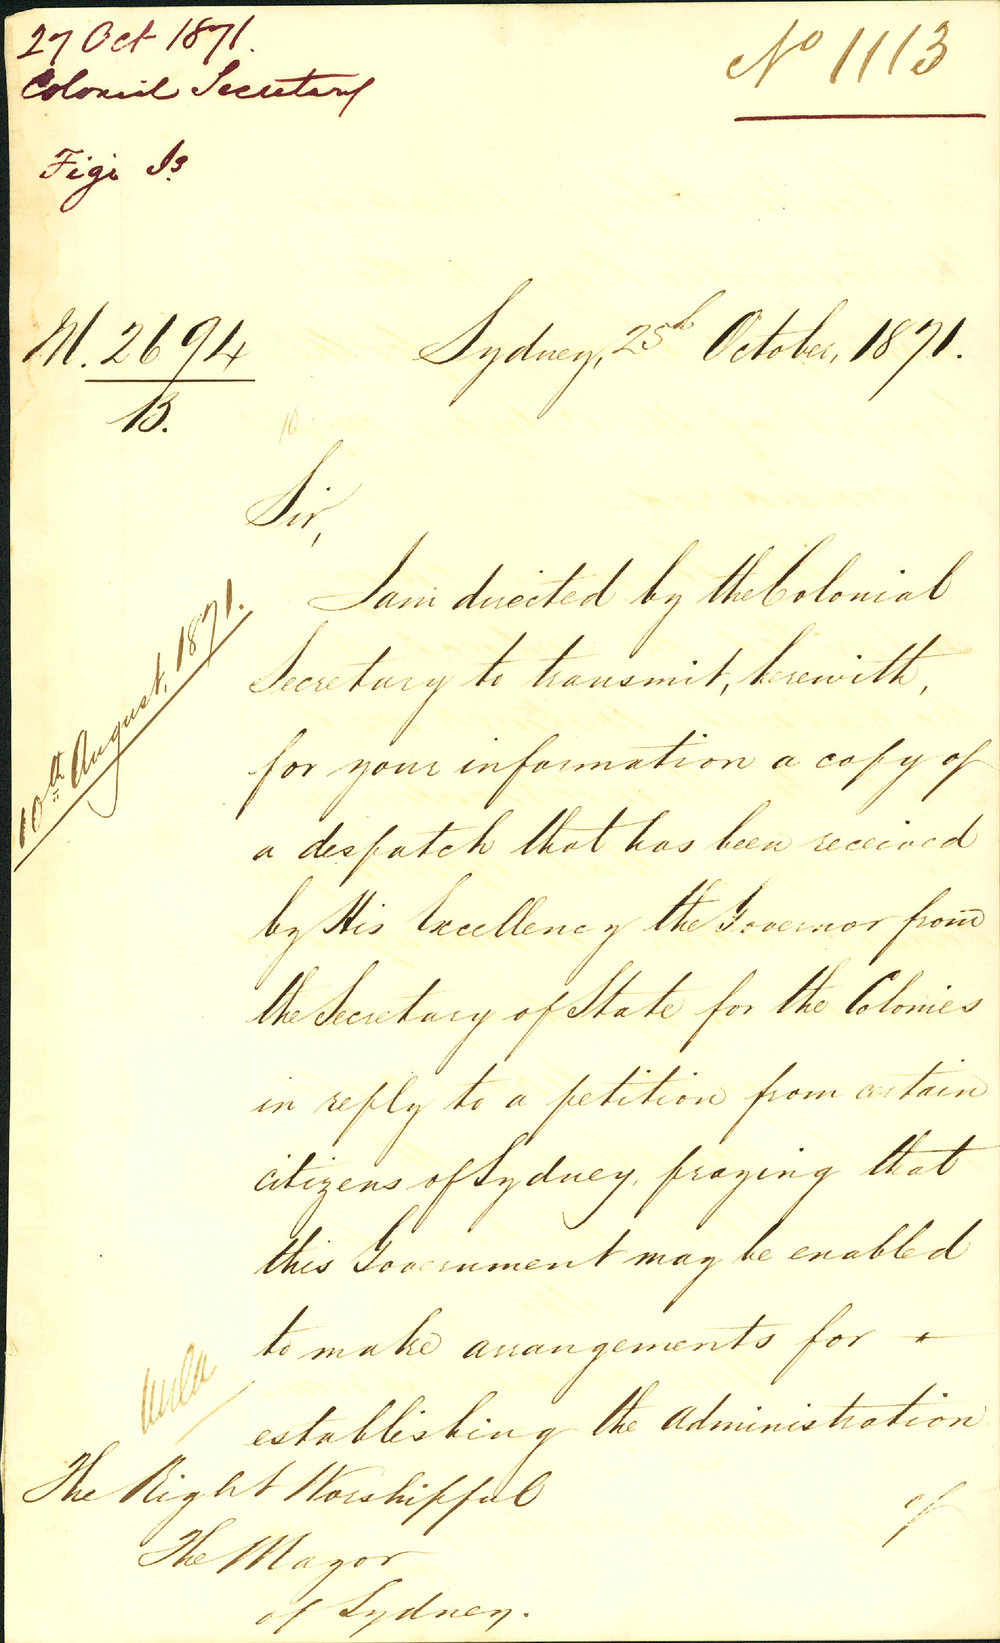 27 Oct 1871.
Colonial Secretary
Figi Is
No 1113
M. 2694
B.
Sydney, 25th October, 1871.
Sir,
I am directed by the Colonial
Secretary to transmit, herewith,
10th August, 1871.
for your information a copy of
a despatch that has been received
by His Excellency the Governor from
the Secretary of State for the Colonies
in reply to a petition from certain
citizens of Sydney, praying that
this Government may be enabled
to make arrangements for
establishing the Administration
of
The Right Worshipful
The Mayor
of Sydney.